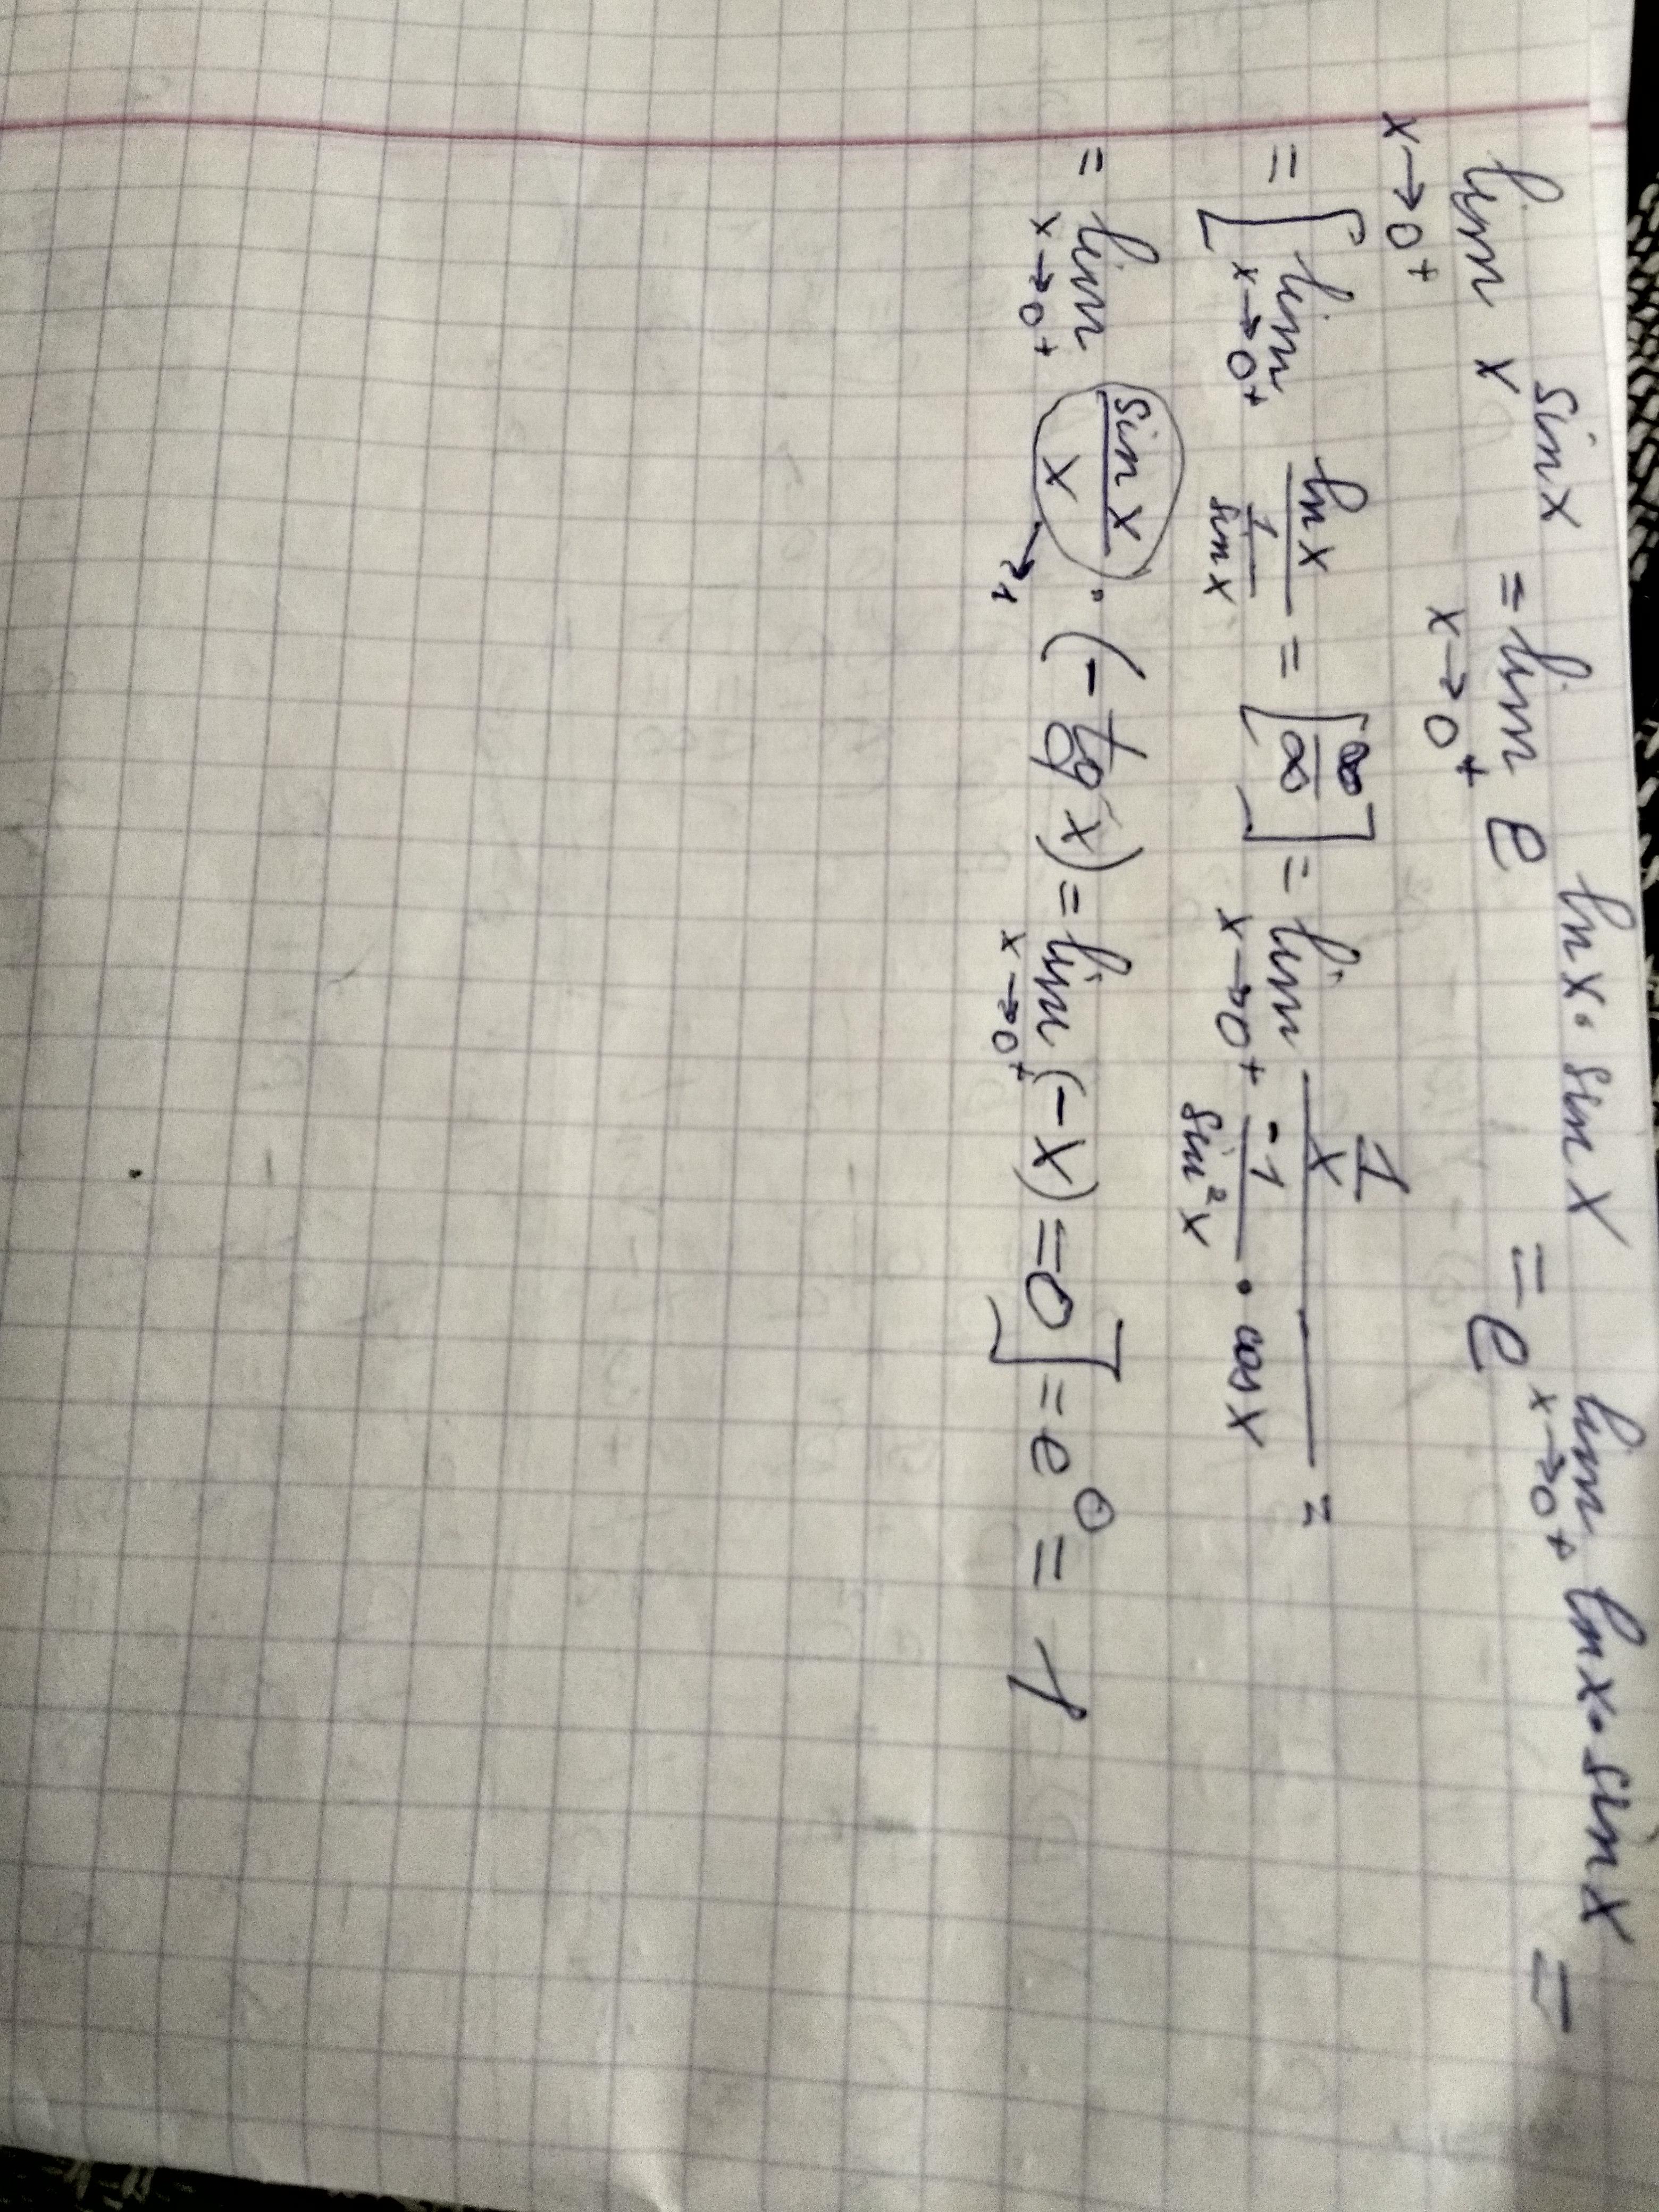 lim x→0⁺ x^(sin x) = lim x→0⁺ e^(ln x · sin x) = e^(lim x→0⁺ ln x · sin x) =
= [ lim x→0⁺ (ln x)/(1/(sin x)) = [∞/∞] = lim x→0⁺ (1/x)/((-1/(sin² x)) · cos x) =
= lim x→0⁺ (sin x)/x →1 · (- tg x) = lim x→0⁺ (-x) = 0 ] = e⁰ = 1